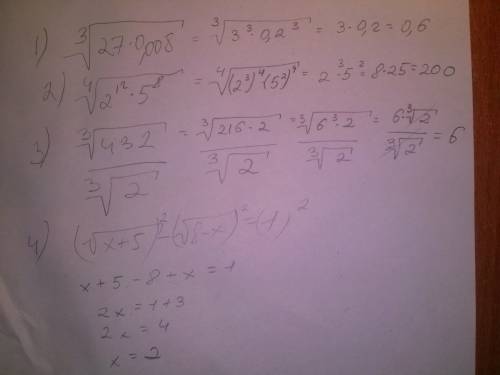 1) ∛(27·0,008) = ∛(3³·0,2³) = 3·0,2 = 0,6
2) ∜(2¹²·5⁸) = ∜((2³)⁴(5²)⁴) = 2³·5² = 8·25 = 200
3) ∛432 / ∛2 = ∛(216·2) / ∛2 = ∛(6³·2) / ∛2 = 6·∛2 / ∛2 = 6
4) (√(x+5))² - (√(8-x))² = (1)²
x+5-8+x=1
2x=1+3
2x=4
x=2